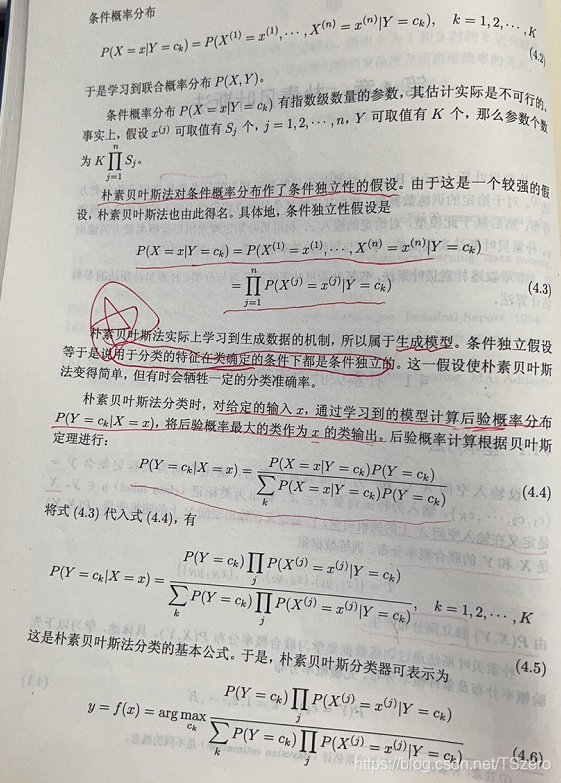 条件概率分布
P(X = x|Y = c_k) = P(X^{(1)} = x^{(1)}, ⋯, X^{(n)} = x^{(n)}|Y = c_k), k = 1, 2, ⋯, K (4.2)
于是学习到联合概率分布 P(X, Y)。
条件概率分布 P(X = x|Y = c_k) 有指数级数量的参数，其估计实际是不可行的。
事实上，假设 x^{(j)} 可取值有 S_j 个，j = 1, 2, ⋯, n，Y 可取值有 K 个，那么参数个数
为 K ∏_{j=1}^{n} S_j。
朴素贝叶斯法对条件概率分布作了条件独立性的假设。由于这是一个较强的假
设，朴素贝叶斯法也由此得名。具体地，条件独立性假设是
P(X = x|Y = c_k) = P(X^{(1)} = x^{(1)}, ⋯, X^{(n)} = x^{(n)}|Y = c_k)
= ∏_{j=1}^{n} P(X^{(j)} = x^{(j)}|Y = c_k) (4.3)
朴素贝叶斯法实际上学习到生成数据的机制，所以属于生成模型。条件独立假设
等于是说用于分类的特征在类确定的条件下都是条件独立的。这一假设使朴素贝叶斯
法变得简单，但有时会牺牲一定的分类准确率。
朴素贝叶斯法分类时，对给定的输入 x，通过学习到的模型计算后验概率分布
P(Y = c_k|X = x)，将后验概率最大的类作为 x 的类输出。后验概率计算根据贝叶斯
定理进行：
P(Y = c_k|X = x) = P(X = x|Y = c_k)P(Y = c_k) / ∑_k P(X = x|Y = c_k)P(Y = c_k) (4.4)
将式 (4.3) 代入式 (4.4)，有
P(Y = c_k|X = x) = P(Y = c_k) ∏_j P(X^{(j)} = x^{(j)}|Y = c_k) / ∑_k P(Y = c_k) ∏_j P(X^{(j)} = x^{(j)}|Y = c_k), k = 1, 2, ⋯, K (4.5)
这是朴素贝叶斯法分类的基本公式。于是，朴素贝叶斯分类器可表示为
y = f(x) = arg max_{c_k} P(Y = c_k) ∏_j P(X^{(j)} = x^{(j)}|Y = c_k) / ∑_k P(Y = c_k) ∏_j P(X^{(j)} = x^{(j)}|Y = c_k) (4.6)
https://blog.csdn.net/TSzero